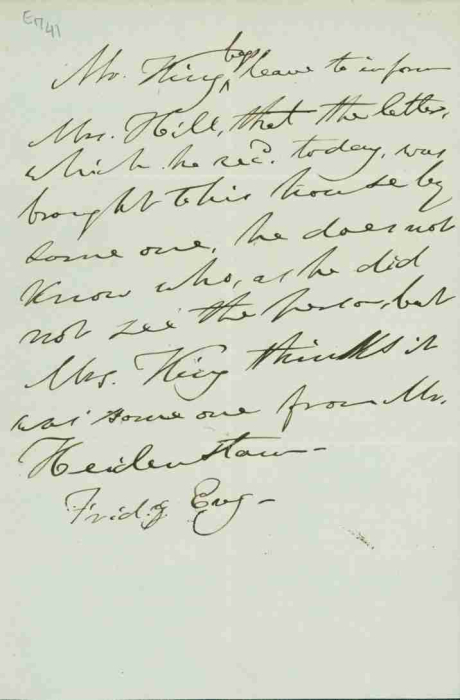 E741
Mr. King begs leave to inform
Mrs. Hill, that the letter,
which he rec.d today, was
brought to his house by
some one, he does not
know who, as he did
not see the person, but
Mrs. King thinks it
was some one from Mr.
Heidenstam—
Frid.y Evg—